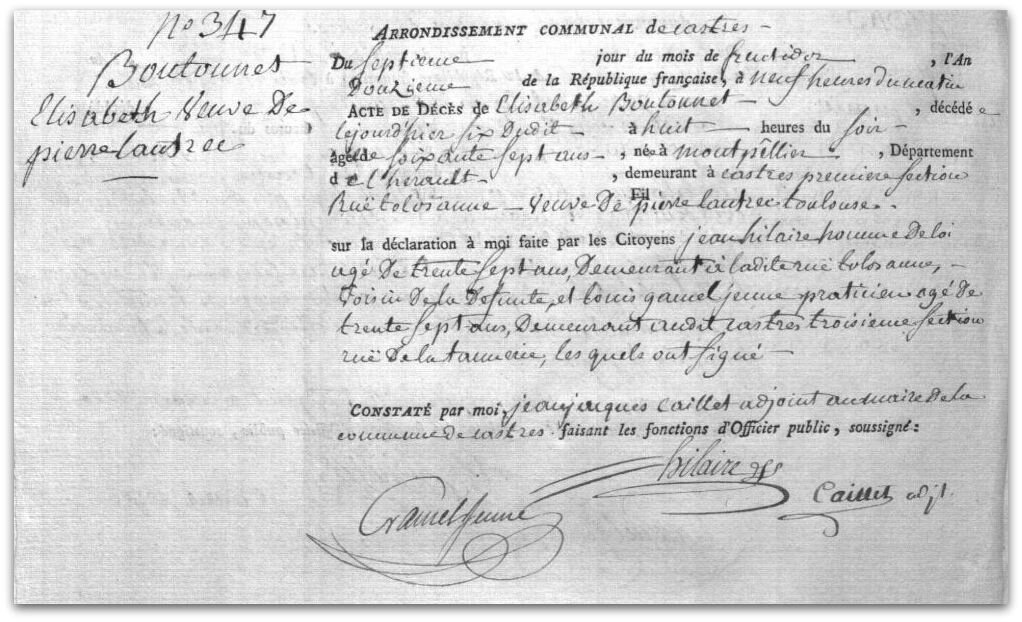 N° 347
Boutounet
Elisabeth Veuve De
pierre lautrec
ARRONDISSEMENT COMMUNAL de castres
Du septieme jour du mois de fructidor , l'An
Douzieme de la République française, à neuf heures du matin
ACTE DE DÉCÈS de Elisabeth Boutounet , décédée
lejourdhier six dudit à huit heures du soir
âgée de soixante sept ans , née à montpéllier , Département
de l'herault , demeurant à castres premiere section
Ruë tolosanne Veuve De Fil pierre lautrec toulouse.
sur la déclaration à moi faite par les Citoyens jean hilaire homme de loi
agé De trente sept ans, Demeurant à ladite ruë tolosanne,
voisin De la Defunte, et louis gamel jeune praticien agé de
trente sept ans, Demeurant audit castres troisieme section
ruë De la tannerie, les quels ont signé
CONSTATÉ par moi, jean jacques Caillet adjoint au maire de la
commune de castres faisant les fonctions d'Officier public, soussigné:
hilaire
Gamel jeune
Caillet adjt.